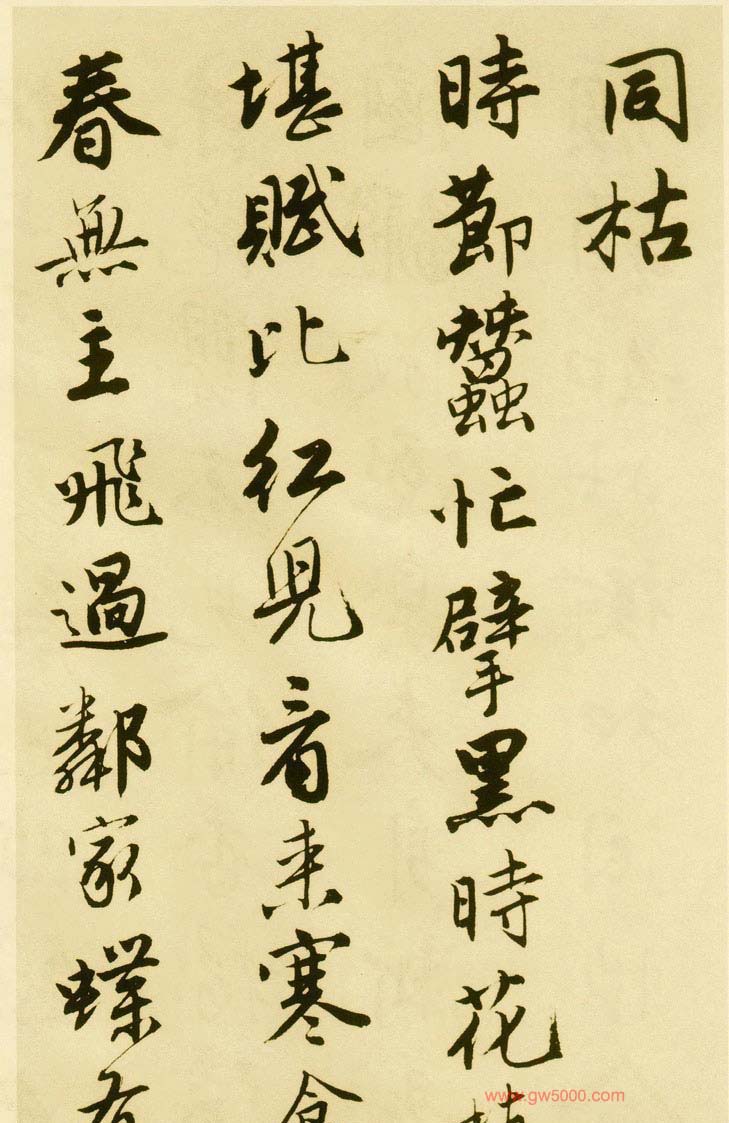 同枯
時節蠶忙擘黑時花枝
堪賦比紅兒看来寒食
春無主飛過鄰家蝶有
www.gw5000.com